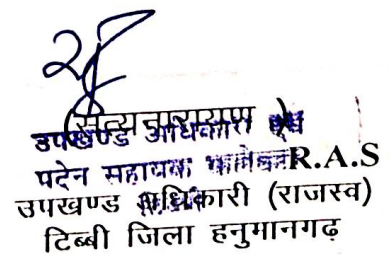 (सत्यनारायण)
उपखण्ड अधिकारी एवं
पदेन सहायक कलेक्टर R.A.S
उपखण्ड अधिकारी (राजस्व)
टिब्बी जिला हनुमानगढ़